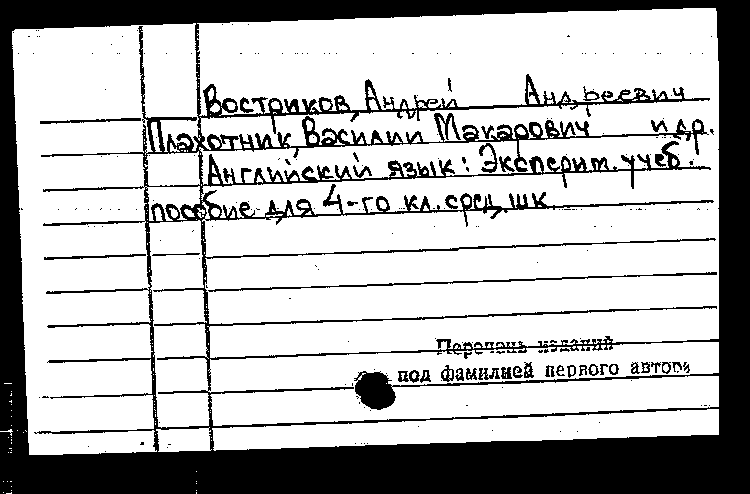 Востриков, Андрей Андреевич
Плахотник, Василий Макарович и др.
Английский язык: Эксперим. учеб.
пособие для 4-го кл. сред. шк.
Перечень изданий
под фамилией первого автора